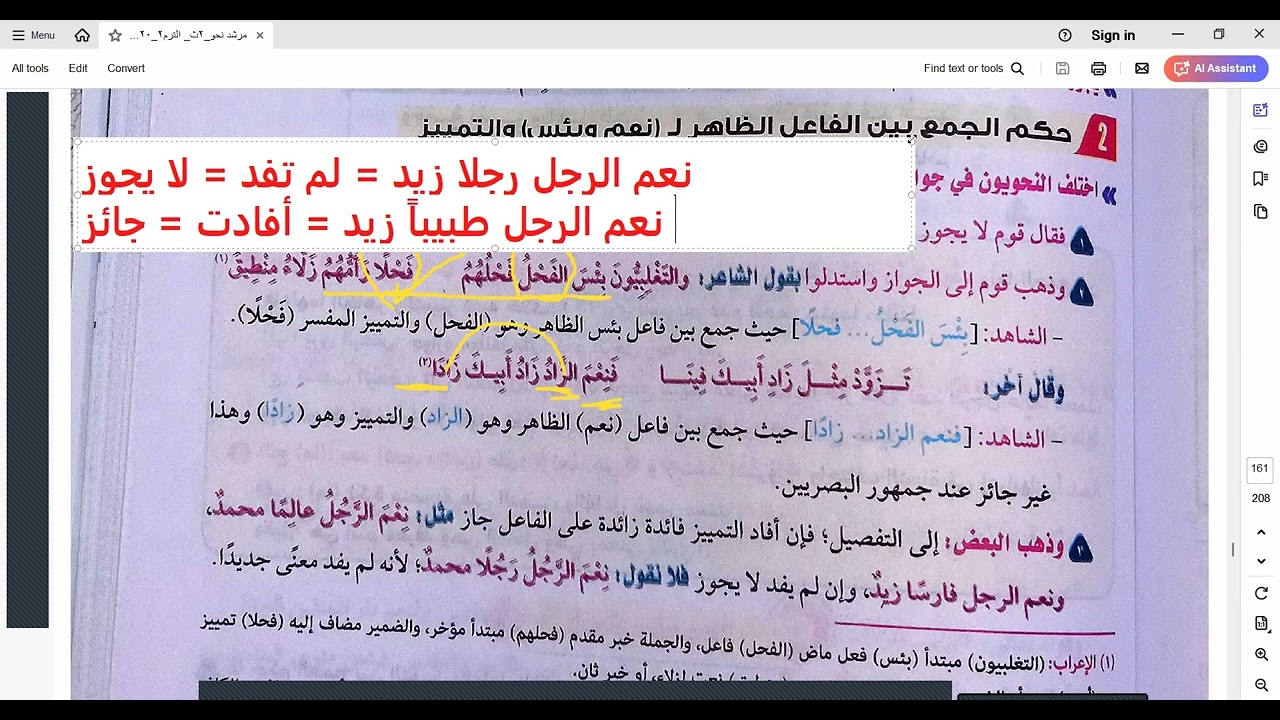 Menu
مرشد نحو_٢ث_ الترم٢_٢٠...
Sign in
All tools
Edit
Convert
Find text or tools
AI Assistant
2 حكم الجمع بين الفاعل الظاهر لـ (نعم وبئس) والتمييز
نعم الرجل رجلا زيد = لم تفد = لا يجوز
نعم الرجل طبيباً زيد = أفادت = جائز
اختلف النحويون في جوا
١ فقال قوم لا يجوز
٢ وذهب قوم إلى الجواز واستدلوا بقول الشاعر: والتَّغْلِبِيُّونَ بِئْسَ الفَحْلُ فَحْلُهُمُ فَحْلًا وَأُمُّهُمُ زَلَّاءُ مِنْطِيقُ (١)
- الشاهد: [بِئْسَ الفَحْلُ... فحلًا] حيث جمع بين فاعل بئس الظاهر وهو (الفحل) والتمييز المفسر (فَحْلًا).
وقال آخر: تَـزَوَّدْ مِثْـلَ زَادِ أَبِيـكَ فِينَـا فَنِعْمَ الزَّادُ زَادُ أَبِيـكَ زَادَا (٢)
- الشاهد: [فنعم الزاد... زادًا] حيث جمع بين فاعل (نعم) الظاهر وهو (الزاد) والتمييز وهو (زادًا) وهذا
غير جائز عند جمهور البصريين.
٣ وذهب البعض: إلى التفصيل؛ فإن أفاد التمييز فائدة زائدة على الفاعل جاز مثل: نعْمَ الرَّجُلُ عالِمًا محمدٌ،
ونعم الرجل فارسًا زيدٌ، وإن لم يفد لا يجوز فلا نقول: نِعْمَ الرَّجُلُ رَجُلًا محمدٌ؛ لأنه لم يفد معنًى جديدًا.
(١) الإعراب: (التغلبيون) مبتدأ (بئس) فعل ماض (الفحل) فاعل، والجملة خبر مقدم (فحلهم) مبتدأ مؤخر، والضمير مضاف إليه (فحلا) تمييز
نعت لزلاء، أو خبر ثان.
161
208